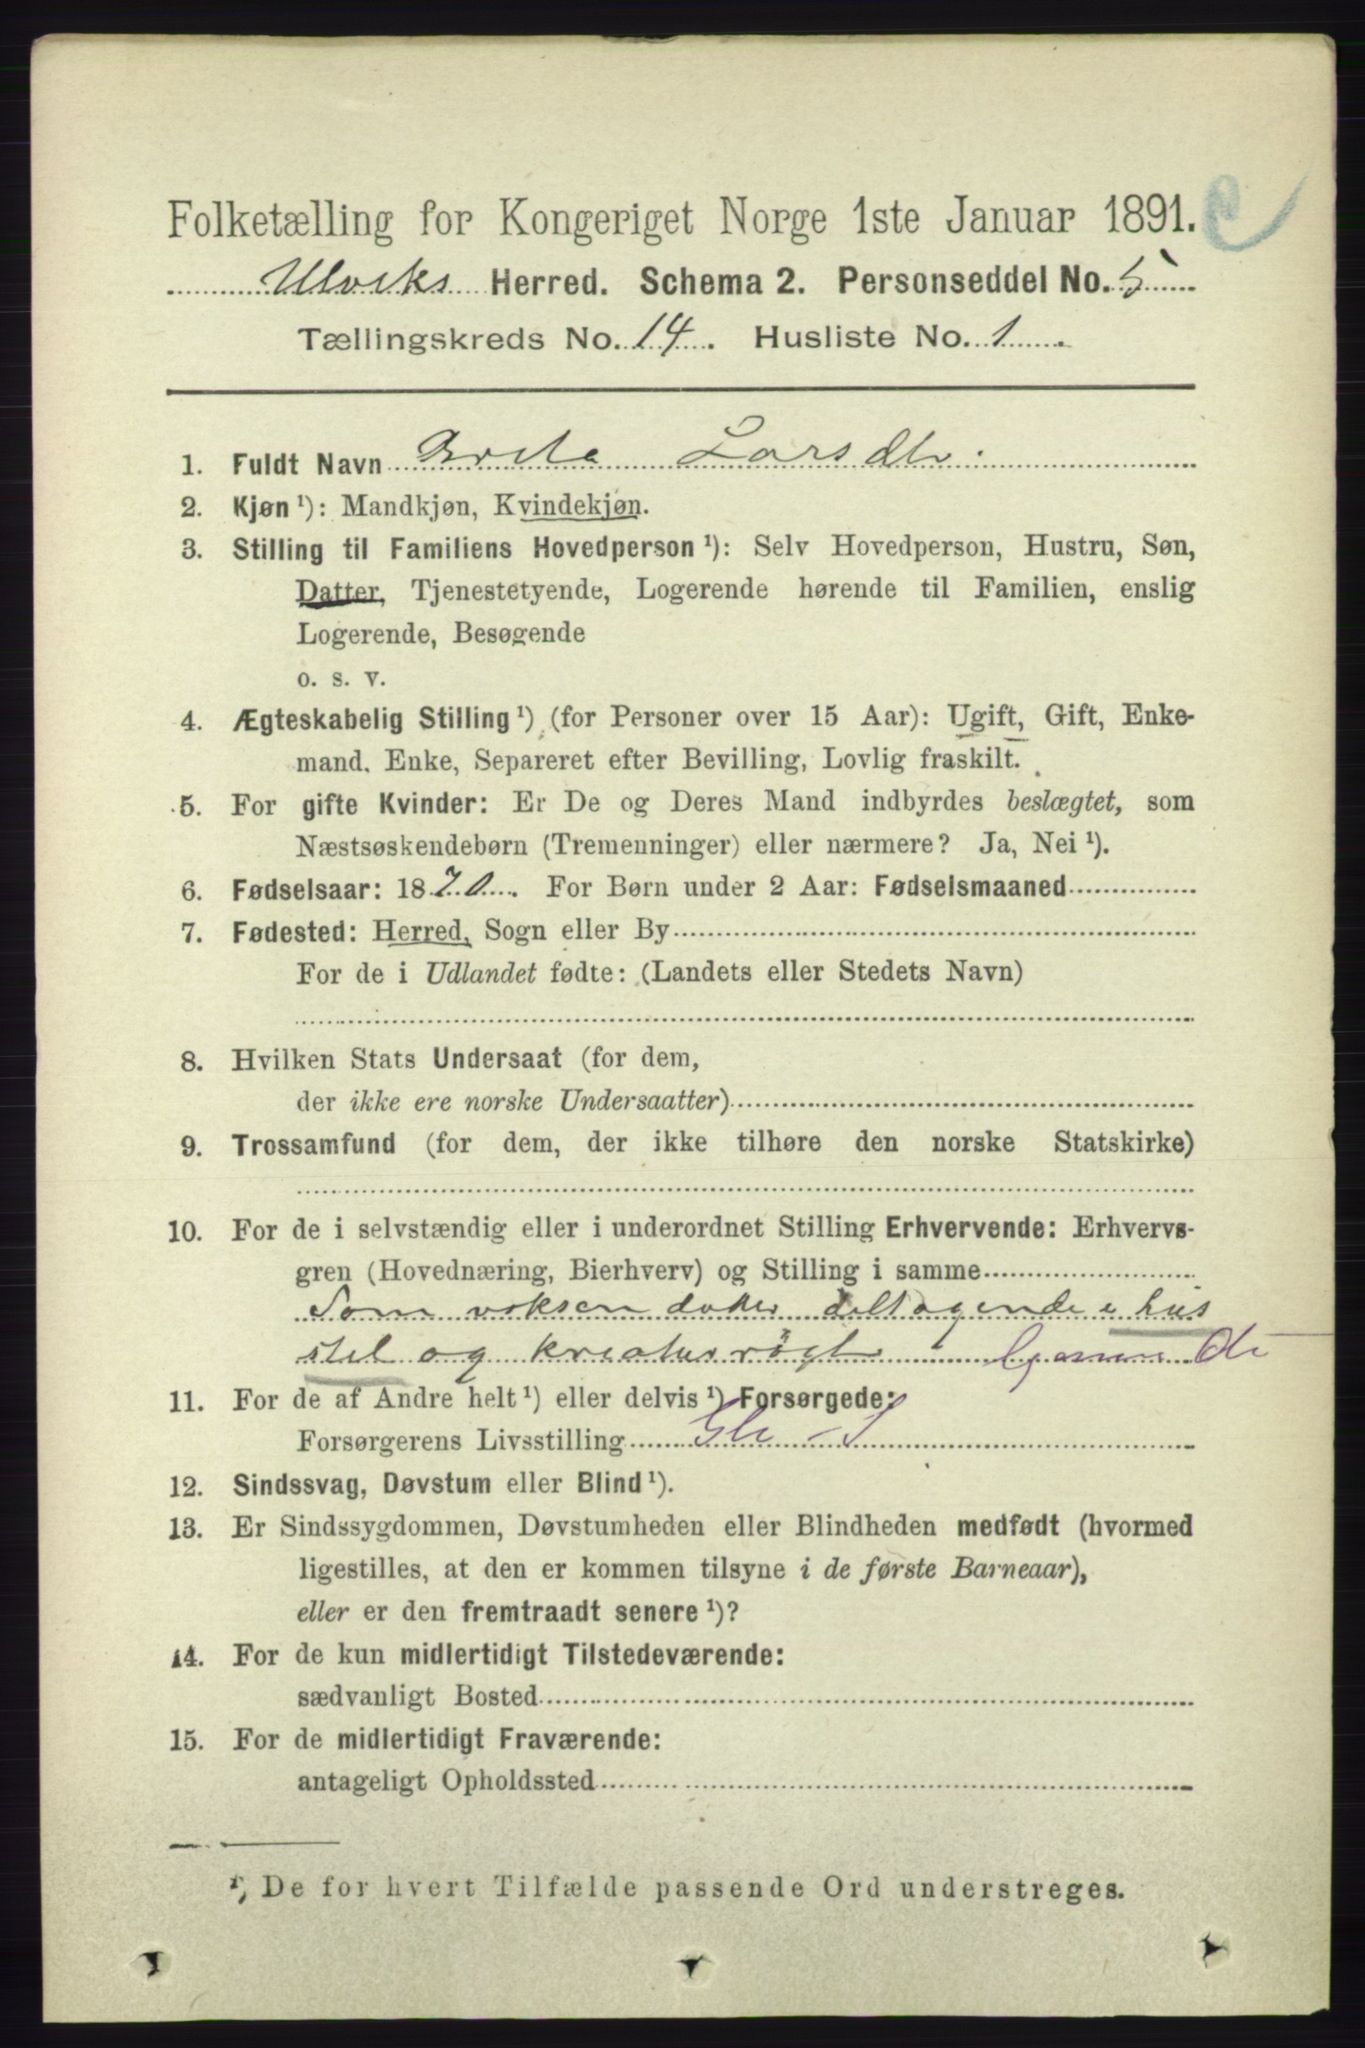 Folketælling for Kongeriget Norge 1ste Januar 1891.
Ulviks Herred. Schema 2. Personseddel No. 5
Tællingskreds No. 14. Husliste No. 1.
1. Fuldt Navn Larsdtr.
2. Kjøn ¹): Mandkjøn, Kvindekjøn.
3. Stilling til Familiens Hovedperson ¹): Selv Hovedperson, Hustru, Søn,
Datter, Tjenestetyende, Logerende hørende til Familien, enslig
Logerende, Besøgende
o. s. v.
4. Ægteskabelig Stilling ¹) (for Personer over 15 Aar): Ugift, Gift, Enke-
mand. Enke, Separeret efter Bevilling, Lovlig fraskilt.
5. For gifte Kvinder: Er De og Deres Mand indbyrdes beslægtet, som
Næstsøskendebørn (Tremenninger) eller nærmere? Ja, Nei ¹).
6. Fødselsaar: 1870. For Børn under 2 Aar: Fødselsmaaned
7. Fødested: Herred, Sogn eller By
For de i Udlandet fødte: (Landets eller Stedets Navn)
8. Hvilken Stats Undersaat (for dem,
der ikke ere norske Undersaatter)
9. Trossamfund (for dem, der ikke tilhøre den norske Statskirke)
10. For de i selvstændig eller i underordnet Stilling Erhvervende: Erhvervs-
gren (Hovednæring, Bierhverv) og Stilling i samme
Som voksen datter deltagende i hus
stel og kreaturrøgt
11. For de af Andre helt ¹) eller delvis ¹) Forsørgede:
Forsørgerens Livsstilling
12. Sindssvag, Døvstum eller Blind ¹).
13. Er Sindssygdommen, Døvstumheden eller Blindheden medfødt (hvormed
ligestilles, at den er kommen tilsyne i de første Barneaar),
eller er den fremtraadt senere ¹)?
14. For de kun midlertidigt Tilstedeværende:
sædvanligt Bosted
15. For de midlertidigt Fraværende:
antageligt Opholdssted
¹) De for hvert Tilfælde passende Ord understreges.